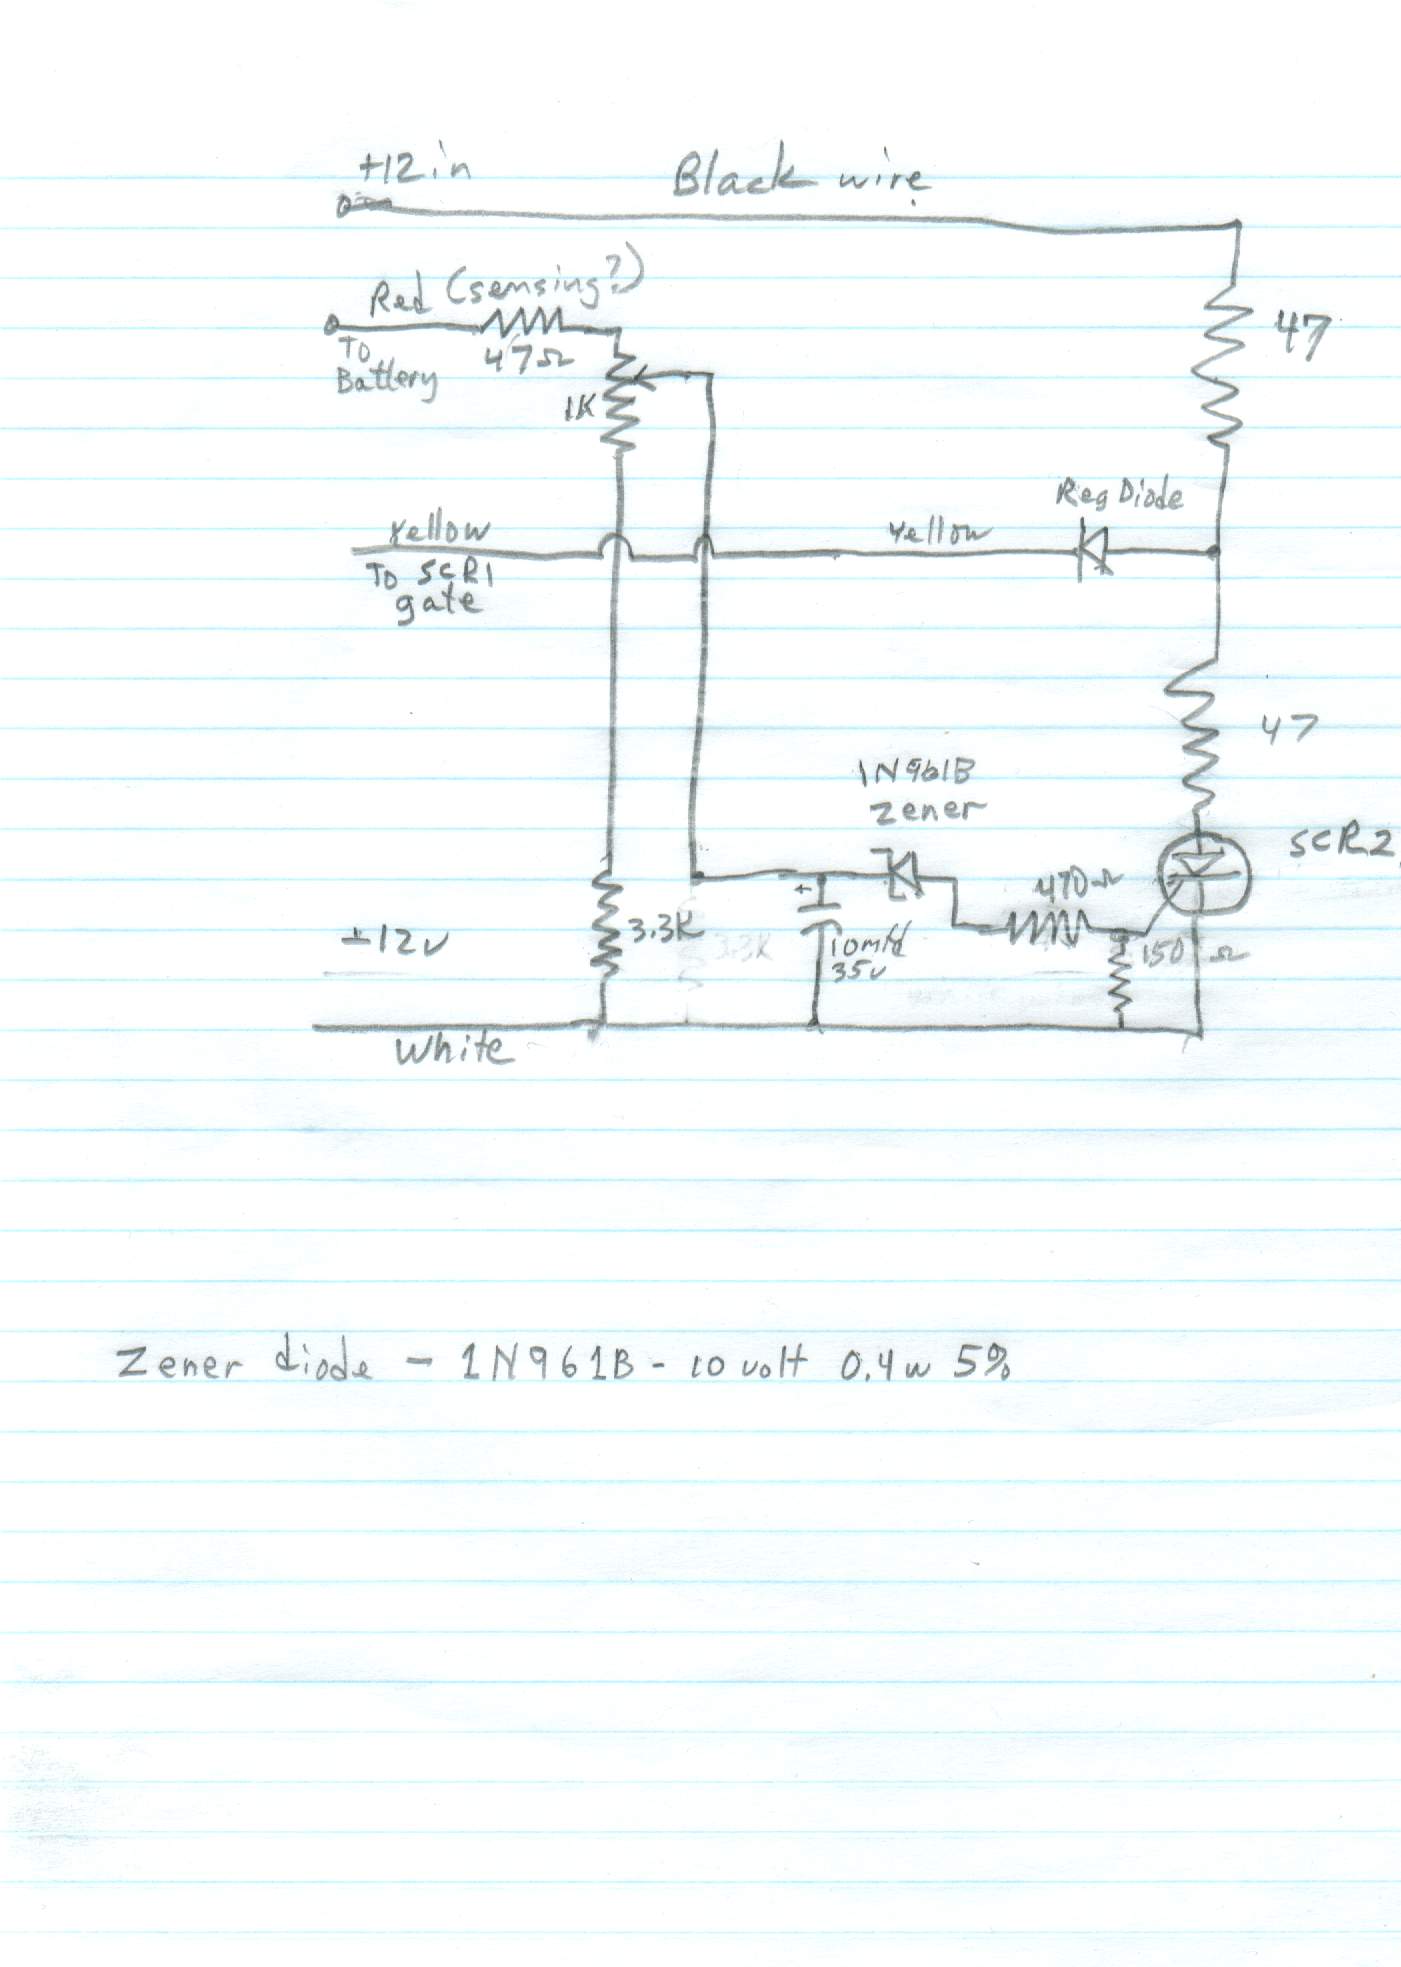 +12 in
Black wire
Red (sensing?)
47Ω
To
Battery
1K
47
Reg Diode
Yellow
Yellow
To SCR1
gate
47
1N961B
Zener
SCR2
470Ω
3.3K
3.3K
10mfd
35v
150 Ω
±12v
White
Zener diode - 1N961B - 10 volt 0.4w 5%